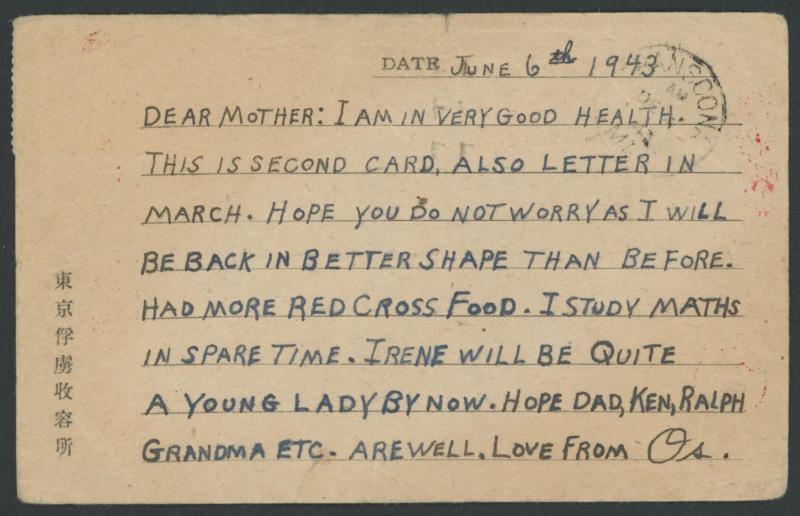 DATE JUNE 6th 1943
DEAR MOTHER: I AM IN VERY GOOD HEALTH.
THIS IS SECOND CARD, ALSO LETTER IN
MARCH. HOPE YOU DO NOT WORRY AS I WILL
BE BACK IN BETTER SHAPE THAN BEFORE.
HAD MORE RED CROSS FOOD. I STUDY MATHS
IN SPARE TIME. IRENE WILL BE QUITE
A YOUNG LADY BY NOW. HOPE DAD, KEN, RALPH
GRANDMA ETC. ARE WELL. LOVE FROM Os.
東京俘虜収容所
AM